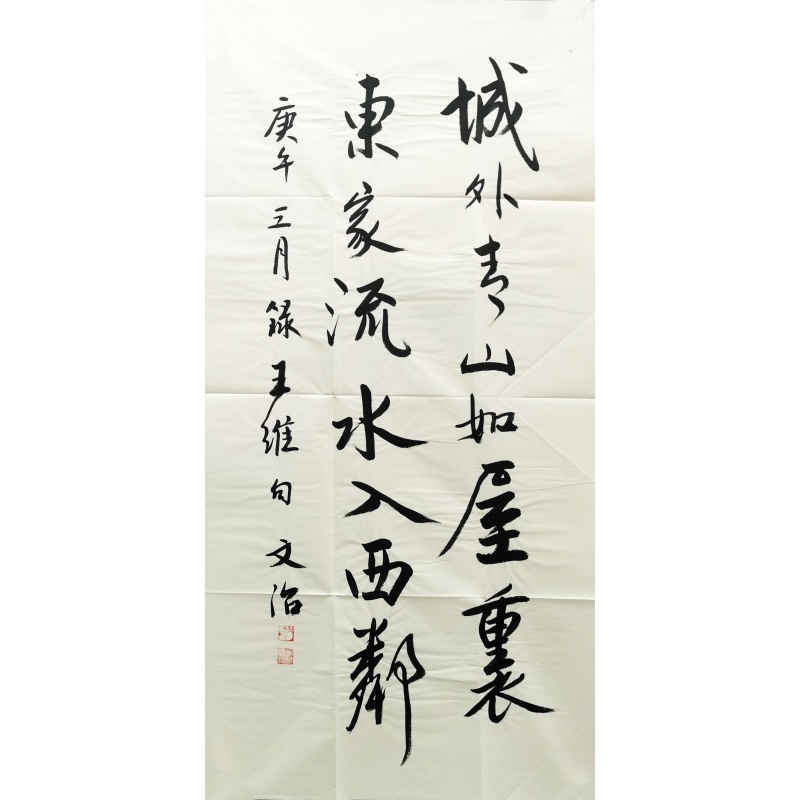 城外青山如屋裏
東家流水入西鄰
庚午三月錄王維句 文治